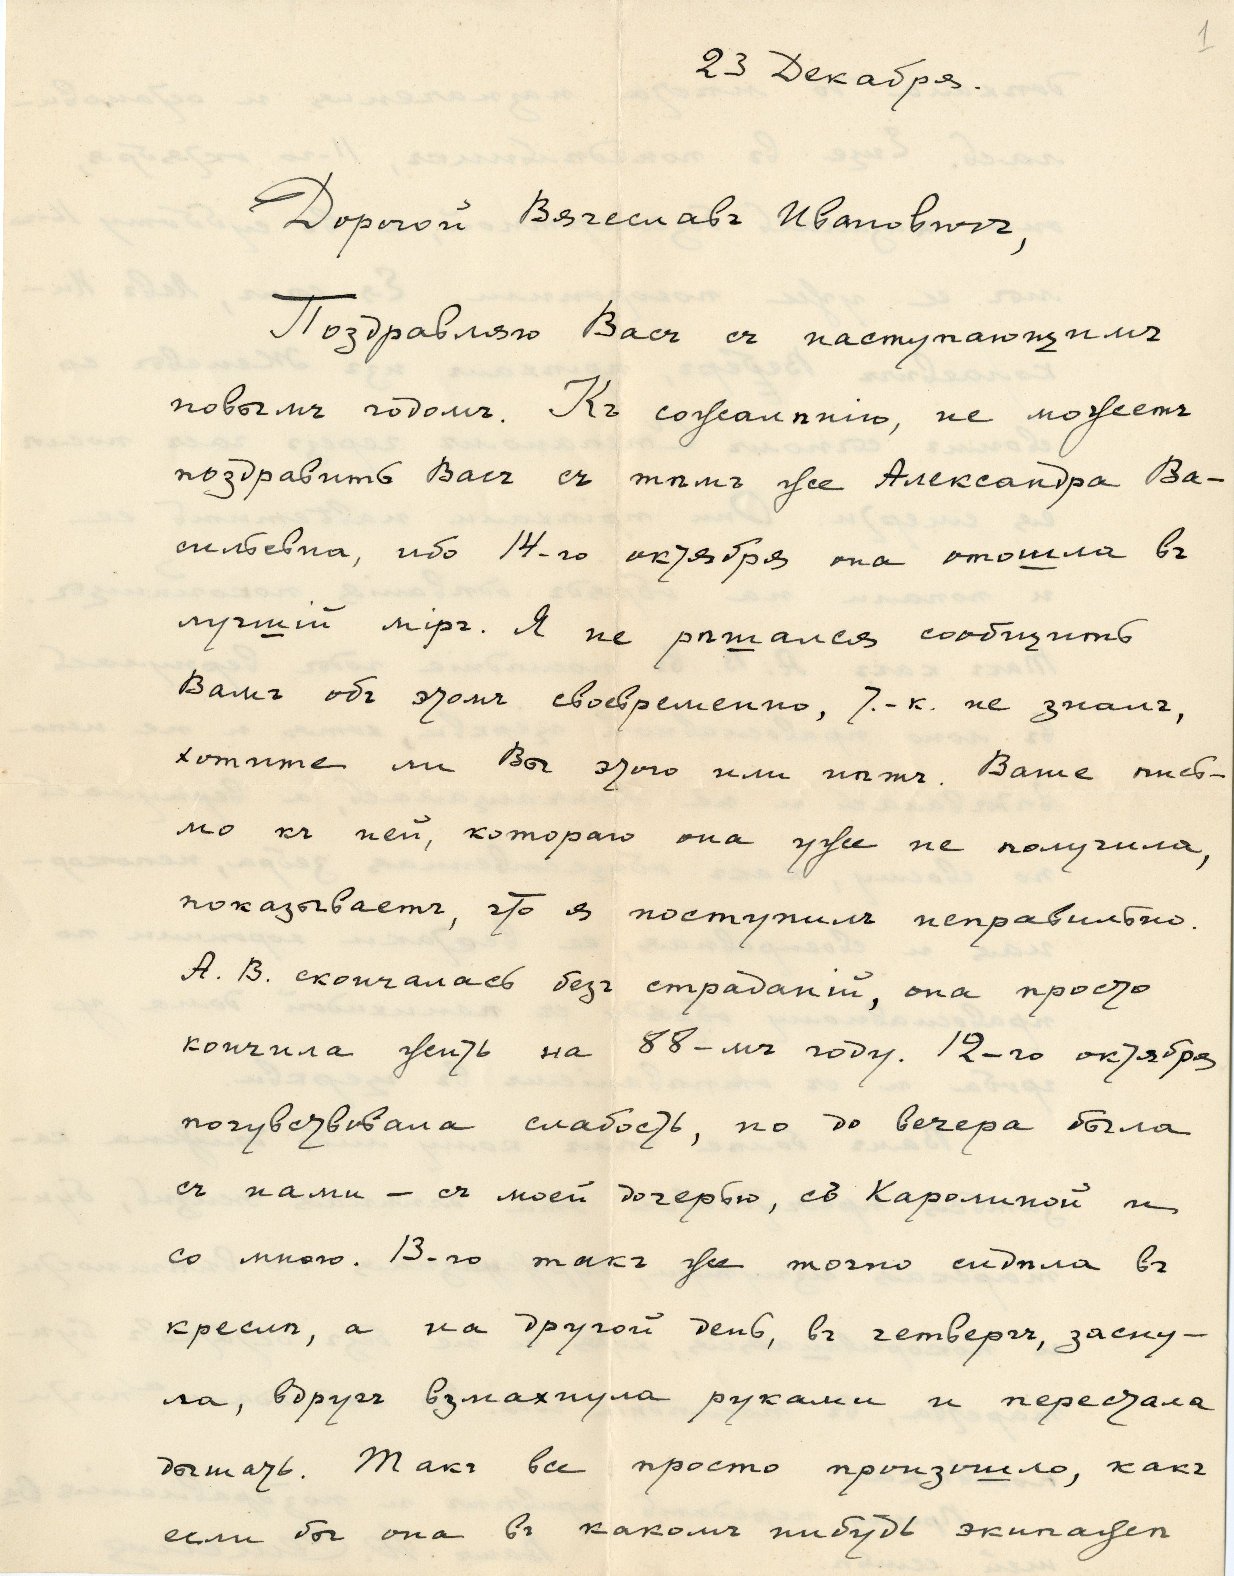 1
23 Декабря.
Дорогой Вячеславъ Ивановичъ,
Поздравляю Васъ съ наступающимъ
новымъ годомъ. Къ сожалѣнію, не можетъ
поздравить Васъ съ тѣмъ же Александра Ва-
сильевна, ибо 14-го октября она отошла въ
лучшій міръ. Я не рѣшался сообщить
Вамъ объ этомъ своевременно, т.-к. не зналъ,
хотите ли Вы этого или нѣтъ. Ваше пись-
мо къ ней, котораго она уже не получила,
показываетъ, что я поступилъ неправильно.
А. В. скончалась безъ страданій, она просто
кончила жить на 88-мъ году. 12-го октября
почувствовала слабость, но до вечера была
съ нами – съ моей дочерью, съ Каролиной и
со мною. 13-го такъ же точно сидѣла въ
креслѣ, а на другой день, въ четвергъ, засну-
ла, вдругъ взмахнула руками и перестала
дышать. Такъ все просто произошло, какъ
если бы она въ какомъ нибудь экипажѣ